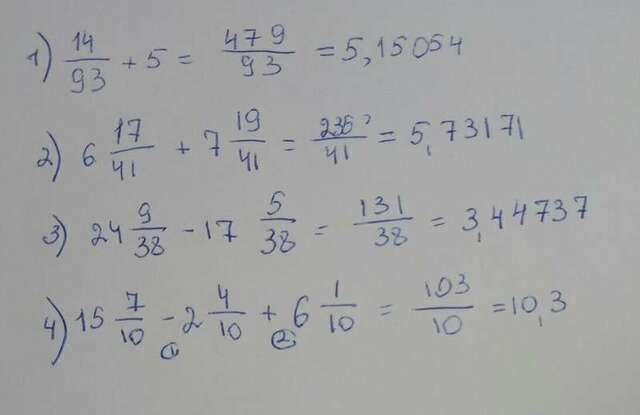 1) 14/93 + 5 = 479/93 = 5,15054
2) 6 17/41 + 7 19/41 = 235/41 = 5,73171
3) 24 9/38 - 17 5/38 = 131/38 = 3,44737
4) 15 7/10 - 2 4/10 + 6 1/10 = 103/10 = 10,3
1 2